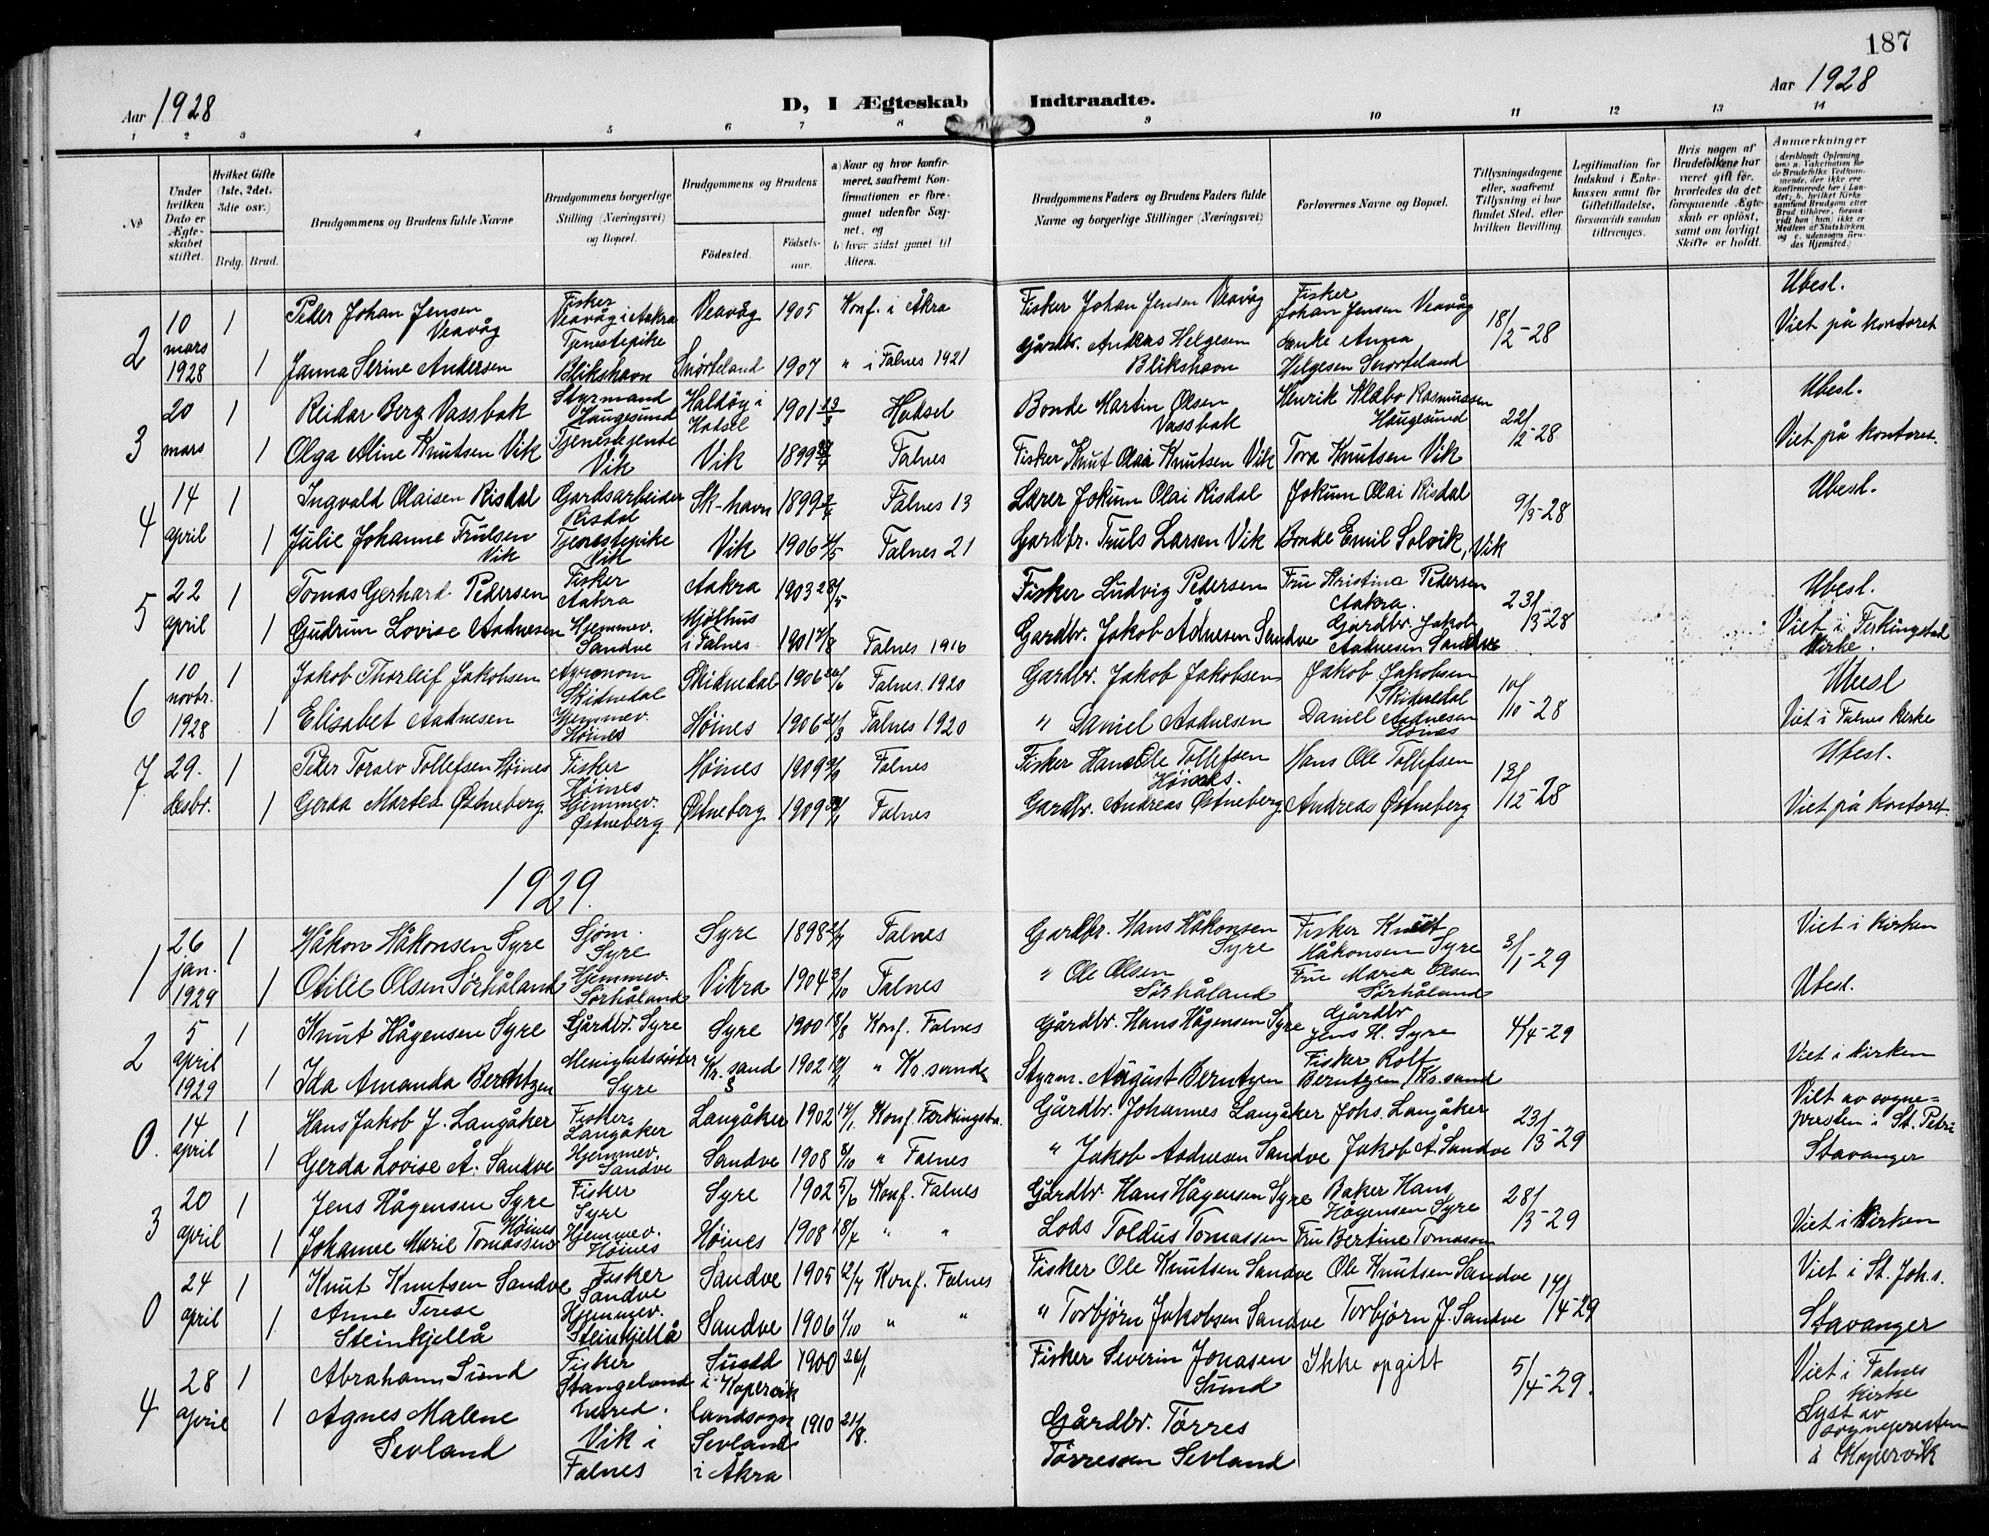 187
Aar 1928
D, I Ægteskab Indtraadte.
Aar 1928
1 2 3 4 5 6 7 8 9 10 11 12 13 14
No
Under hvilken Dato er Ægteskabet stiftet.
Hvilket Gifte (1ste, 2det, 3die osv.)
Brdg. Brud.
Brudgommens og Brudens fulde Navne
Brudgommens borgerlige Stilling (Næringsvei) og Bopæl.
Brudgommens og Brudens
Födested.
Födselsaar.
a) Naar og hvor konfirmeret, saafremt Konfirmationen er foregaaet udenfor Sognet, og
b) hvor sidst gaaet til Alters.
Brudgommens Faders og Brudens Faders fulde Navne og borgerlige Stillinger (Næringsvei)
Forlovernes Navne og Bopæl.
Tillysningsdagene eller, saafremt Tillysning ei har fundet Sted, efter hvilken Bevilling.
Legitimation for Indskud i Enkekassen samt for Giftetilladelse, forsaavidt saadan tiltrænges.
Hvis nogen af Brudefolkene har været gift för, hvorledes da det foregaaende Ægteskab er oplöst, samt om lovligt Skifte er holdt.
Anmærkninger
2 10 mars 1928 1 Peder Johan Jensen Veavåg Fisker Veavåg i Aakra Veavåg 1905 Konf. i Åkra Fisker Johan Jensen Veavåg Fisker Johan Jensen Veavåg 18/2-28 Ubesl.
1 Janna Serine Andersen Tjenestepike Blikshavn Snørteland 1907 " i Falnes 1921 Gårdbr. Andreas Helgesen Blikshavn Enke Anna Helgesen Snørteland Viet på kontoret
3 20 mars 1 Reidar Berg Vassbak Styrmand Haugesund Haldøy i Hadsel 1901 Hadsel Bonde Martin Olsen Vassbak Henrik Klæbo Rasmussen Haugesund 22/2-28 Ubesl.
1 Olga Aline Knutsen Vik Tjenestejente Vik Vik 1899 Falnes Fisker Knut Olai Knutsen Vik Tora Knutsen Vik Viet på kontoret.
4 14 april 1 Ingvald Olaisen Risdal Gardsarbeider Risdal Sk-havn 1899 Falnes 13 Lærer Jokum Olai Risdal Jokum Olai Risdal 9/3-28 Ubesl.
1 Julie Johanne Trulsen Vik Tjenestepike Vik Vik 1906 Falnes 21 Gardbr. Truls Larsen Vik Bonde Emil Solvik, Vik
5 22 april 1 Tomas Gerhard Pedersen Fisker Aakra Aakra 1903 28/5 Fisker Ludvig Pedersen Fru Kristina Pedersen Aakra. 23/3-28 Ubesl.
1 Gudrun Lovise Aadnesen Hjemmev. Sandve Mjølhus i Falnes 1901 Falnes 1916 Gardbr. Jakob Adnesen Sandve Gardbr. Jakob Aadnesen Sandve Viet i Ferkingstad kirke.
6 10 novbr. 1928 1 Jakob Thorleif Jakobsen Agronom Skidnedal Skidnedal 1906 Falnes 1920 Gardbr. Jakob Jakobsen Jakob Jakobsen Skidnedal 10/10-28 Ubesl
1 Elisabet Aadnesen Hjemmev. Høines Høines 1906 Falnes 1920 " Daniel Aadnesen Daniel Aadnesen Hønes Viet i Falnes kirke
7 29. desbr. 1 Peder Toralv Tollefsen Høines Fisker Høines Høines 1909 Falnes Fisker Hans Ole Tollefsen Høines. Hans Ole Tollefsen 13/12-28 Ubesl.
1 Gerda Martea Østneberg Hjemmev. Østneberg Østneberg 1909 Falnes Gardbr. Andreas Østneberg Andreas Østneberg Viet på kontoret
1929.
1 26 jan. 1929 1 Håkon Håkonsen Syre Sjøm. Syre Syre 1898 Falnes Gardbr. Hans Håkonsen Syre Fisker Knut Håkonsen Syre 3/1-29 Viet i kirken
1 Otilie Olsen Sørhåland Hjemmev. Sørhåland Vikra 1904 3/10 Falnes " Ole Olsen Sørhåland Fru Maria Olsen Sørhåland Ubesl.
2 5 april 1929 1 Knut Hågensen Syre Gårdbr. Syre Syre 1900 Konf. Falnes Gårdbr. Hans Hågensen Syre Gårdbr Jens H. Syre 4/4-29
1 Ida Amanda Berntzen Menighetssøster Syre Kr.sand S 1902 " Kr.sand Styrm. August Berntzen Fisker Rolf Berntzen, Kr.sand Viet i kirken
0. 14 april 1 Hans Jakob J. Langåker Fisker Langåker Langåker 1902 14/1. Konf. Ferkingsta. Gårdbr. Johannes Langåker Johs. Langåker 23/3-29 Viet av sogne= presten i St. Petri
1 Gerda Lovise A. Sandve Hjemmev. Sandve Sandve 1908 8/10 " Falnes " Jakob Aadnesen Sandve Jakob A. Sandve Stavanger
3 20 april 1 Jens Hågensen Syre Fisker Syre Syre 1902 5/6 Konf. Falnes Gårdbr. Hans Hågensen Syre Baker Hans Hågensen Syre 28/3-29
1 Johanne Marie Tomassen Høines Hjemmev. Høines Høines 1908 18/4 " " Lods Toldus Tomassen Fru Bertine Tomassen Viet i kirken
0 24 april 1 Knut Knutsen Sandve Fisker Sandve Sandve 1905 12/7 Konf. Falnes Fisker Ole Knutsen Sandve Ole Knutsen Sandve 14/4-29 Viet i St. Joh.s.
1 Anne Terese Steinkjellå Hjemmev. Steinkjellå Sandve 1906 1/10 " " " Torbjørn Jakobsen Sandve Torbjørn J. Sandve Stavanger
4 28 april 1 Abraham Sund Fisker Stangeland herred. Sund i Kopervik landsogn 1900 26/1 Fisker Severin Jonasen Sund Ikke opgitt 5/4-29. Viet i Falnes kirke
1 Agnes Malene Sevland Vik i Falnes Sevland i Åkra 1910 21/8. Gårdbr. Tørres Tørressen Sevland Lyst av sognepresten i Kopervik